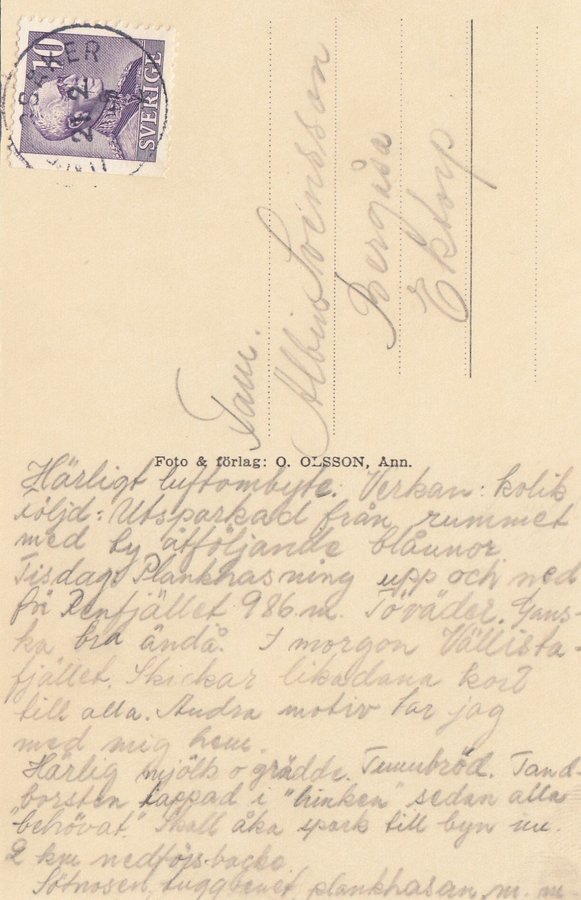 10
SVERIGE
Fam.
Albin Svensson
Bergåsa
Ektorp
Foto & förlag: O. OLSSON, Ann.
Härligt luftombyte. Verkan: kolik
följd: Utsparkad från rummet
med ty åtföljande blåunor
Tisdag: Plankhasning upp och ned
för Renfjället 986 m. Töväder. Gans-
ka bra ändå. I morgon Vällista-
fjället. Skickar likadana kort
till alla. Andra motiv tar jag
med mig hem.
Härlig mjölk o grädde. Tunnbröd. Tand-
borsten tappad i "hinken" sedan alla
"behövat". Skall åka spark till byn nu.
2 km nedförsbacke.
Sötnosen, tuggbenet, plankhasan, m. m.